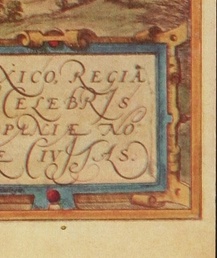 XICO, REGIA
CELEBRIS
SPANIÆ NO
Æ CIVITAS.